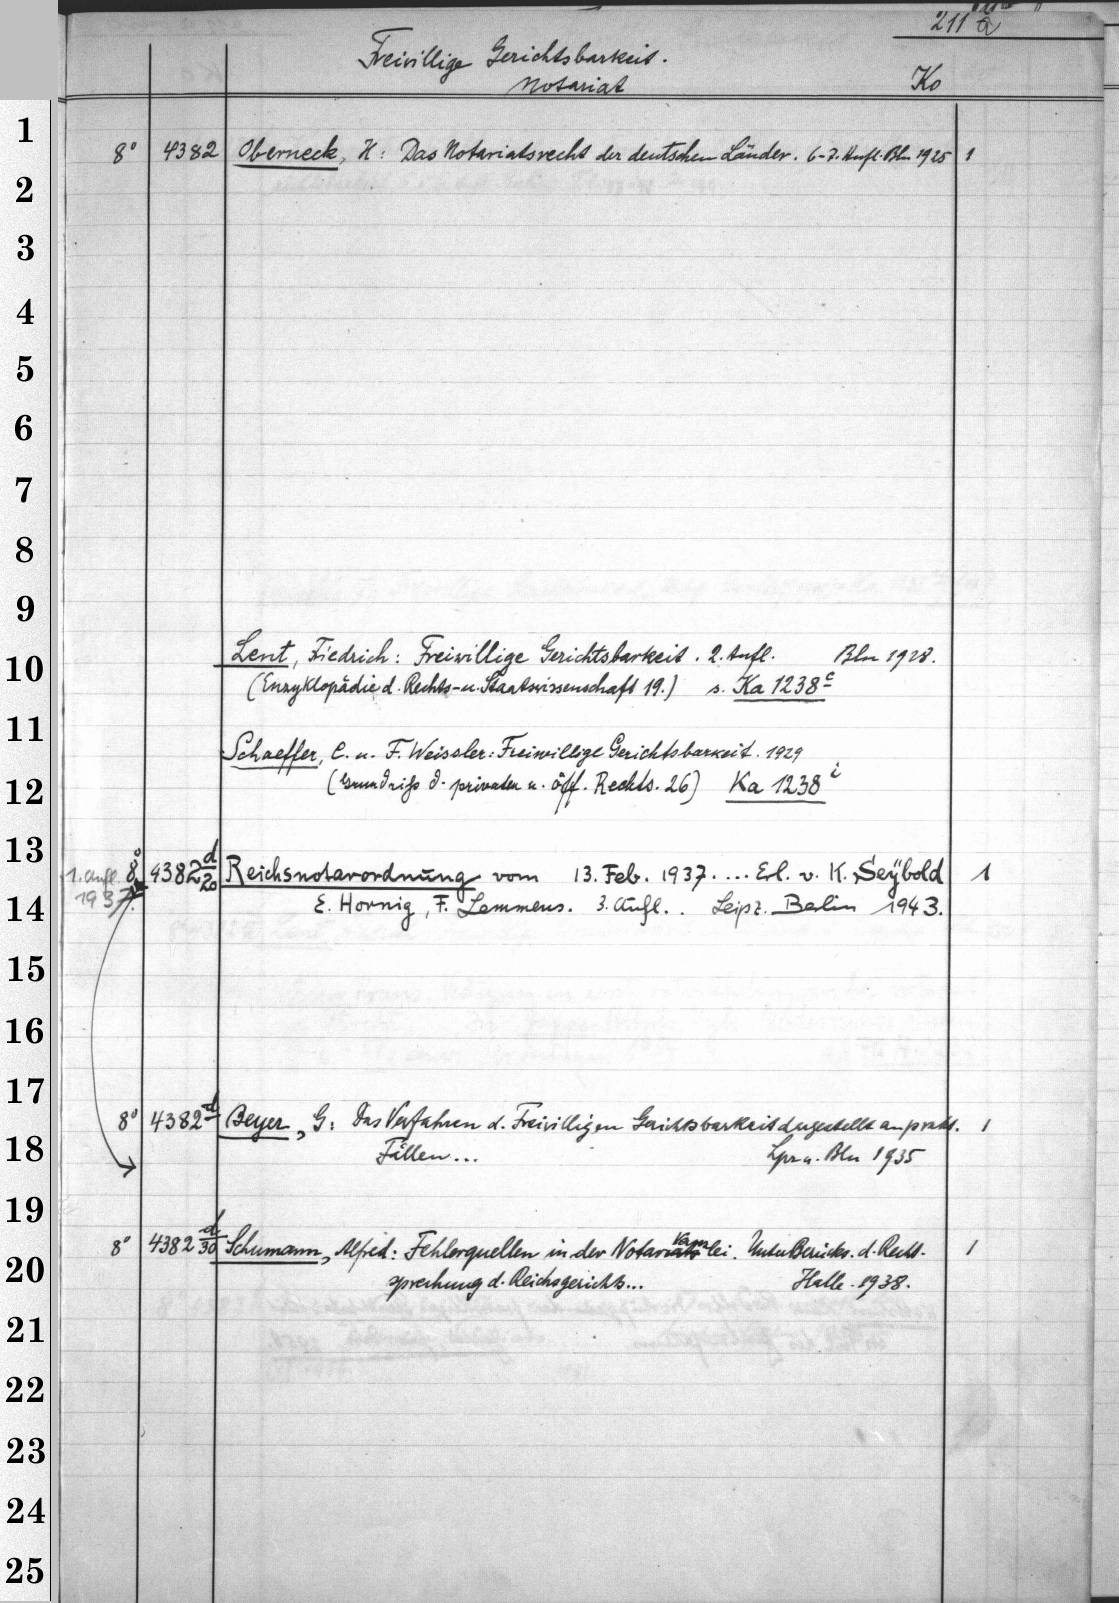 211 a
Freiwillige Gerichtsbarkeit.
Notariat Ko
1
8° 4382 Oberneck, H: Das Notariatsrecht der deutschen Länder. 6-7. Aufl. Bln 1925 1
2
3
4
5
6
7
8
9
10 Lent, Friedrich: Freiwillige Gerichtsbarkeit. 2. Aufl. Bln 1928.
(Enzyklopädie d. Rechts- u. Staatswissenschaft 19.) s. Ka 1238 c
11 Schaeffer, C. u. F. Weissler: Freiwillige Gerichtsbarkeit. 1929
12 (Grundriß d. privaten u. öff. Rechts. 26) Ka 1238 i
13 1. Aufl. 8° 4382 d/20 Reichsnotarordnung vom 13. Feb. 1937.... Erl. v. K. Seÿbold 1
14 1937. E. Hornig, F. Lemmens. 3. Aufl.. Leipz. Berlin 1943.
15
16
17
8° 4382 d Beyer, G: Das Verfahren d. Freiwilligen Gerichtsbarkeit dargestellt an prakt. 1
18 Fällen... Lpz u. Bln 1935
19
8° 4382 d/30 Schumann, Alfred: Fehlerquellen in der Notariatskanzlei. Unter Berücks. d. Recht- 1
20 sprechung d. Reichsgerichts... Halle 1938.
21
22
23
24
25